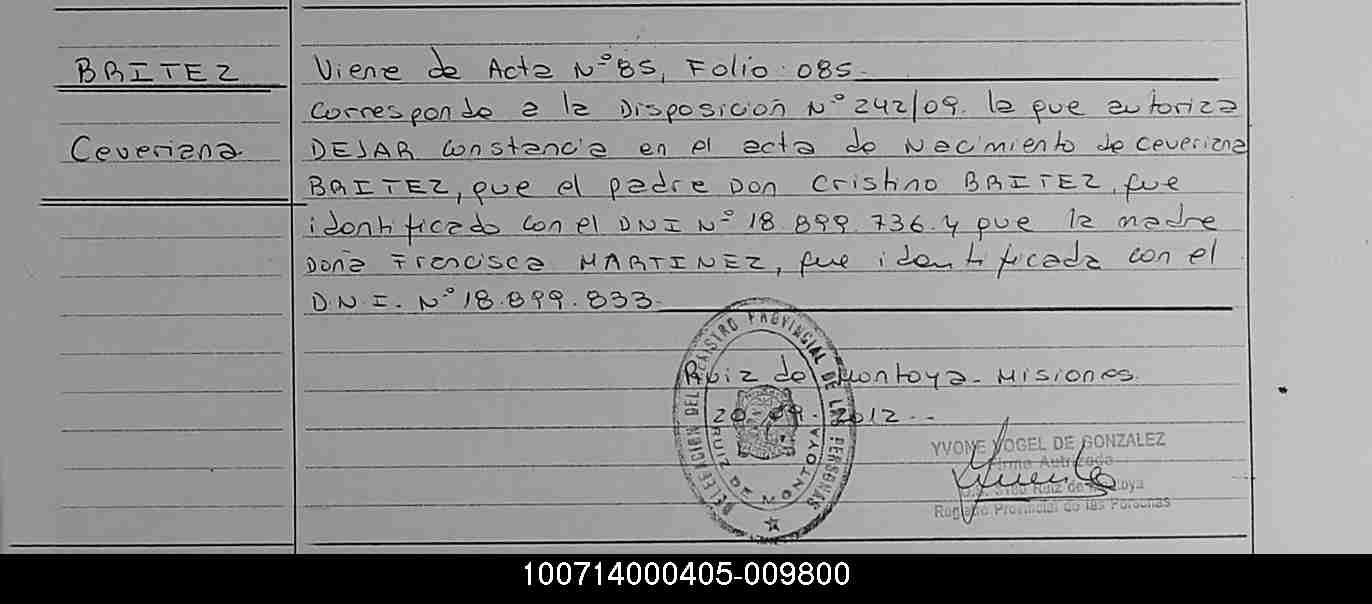 BRITEZ
Ceveriana.
Viene de Acta Nº 85, Folio: 085.
Corresponde a la Disposición Nº 242/09. la que autoriza
DEJAR constancia en el acta de Nacimiento de Ceveriana
BRITEZ, que el padre Don Cristino BRITEZ, fue
identificado con el DNI Nº 18.899.736. y que la madre
Doña Francisca MARTINEZ, fue identificada con el
D.N.I. Nº 18.899.833.
Ruiz de Montoya - Misiones.
20-09-2012.-
DELEGACION DEL REGISTRO PROVINCIAL DE LAS PERSONAS
RUIZ DE MONTOYA
YVONE VOGEL DE GONZALEZ
Firma Autorizada
Ruiz de Montoya
Registro Provincial de las Personas
100714000405-009800